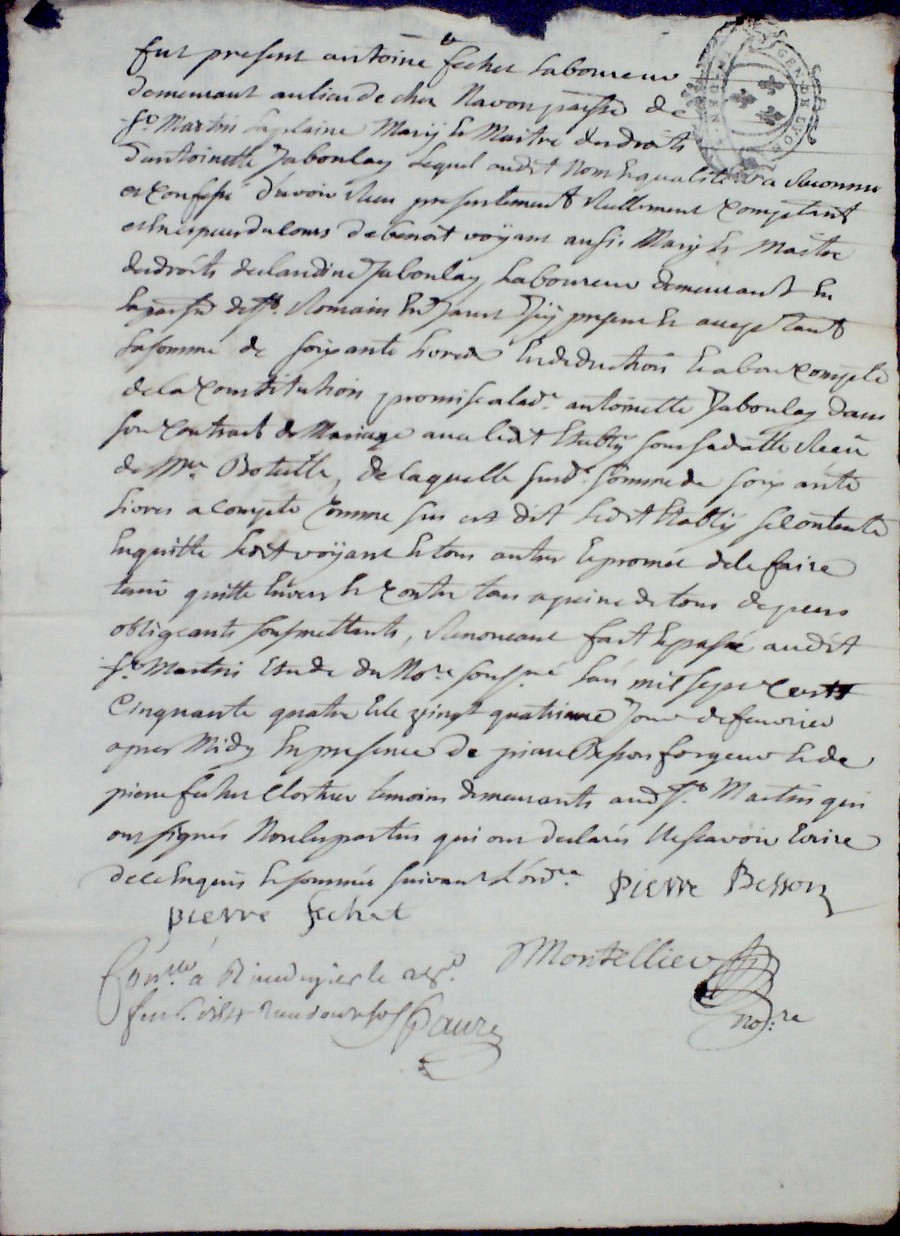 GEN. DE LYON
fut present antoine fechet Laboureur
demeurant au lieu de chez Navon parsse de
St. Martin Laplaine Mary et Maitre des droits
d'antoinette Jaboulay Lequel audit Nom et qualité a Reconnu
et confessé d'avoir Receu presentement Reellement comptant
et en especes du cours de benoit voyant aussi Mary et maitre
des droits de claudine Jaboulay Laboureur demeurant En
la parsse de St. Romain En Jarest Icy present et acceptant
La somme de soixante Livres En deduction et a bon compte
de la constitution promise a lade. antoinette Jaboulay dans
son contract de Mariage avec ledit Etably sous sa datte Receu
de Mre. , de laquelle susde. somme de soixante
Livres a compte comme sus est dit Ledit Etably se contente
En quitte Ledit voyant et tous autres et promet de le faire
tenir quitte Envers et contre tous a peine de tous depens
obligeants soumettants, Renonceant fait et passé audit
St. Martin Etude du Nore soussné Lan mil sept cents
Cinquante quatre et le vingt quatrieme Jour de fevrier
apres Midy En presence de pierre Besson forgeur et de
pierre fechet Clostrier temoins demeurants audt St. Martin qui
ont signés Non les parties qui ont declarés Ne scavoir Ecrire
de ce Enquis et sommés suivant L'ordre
Pierre Besson
pierre fechet
Montellier
Nore
Conlle. a Rivedegier le
Faure